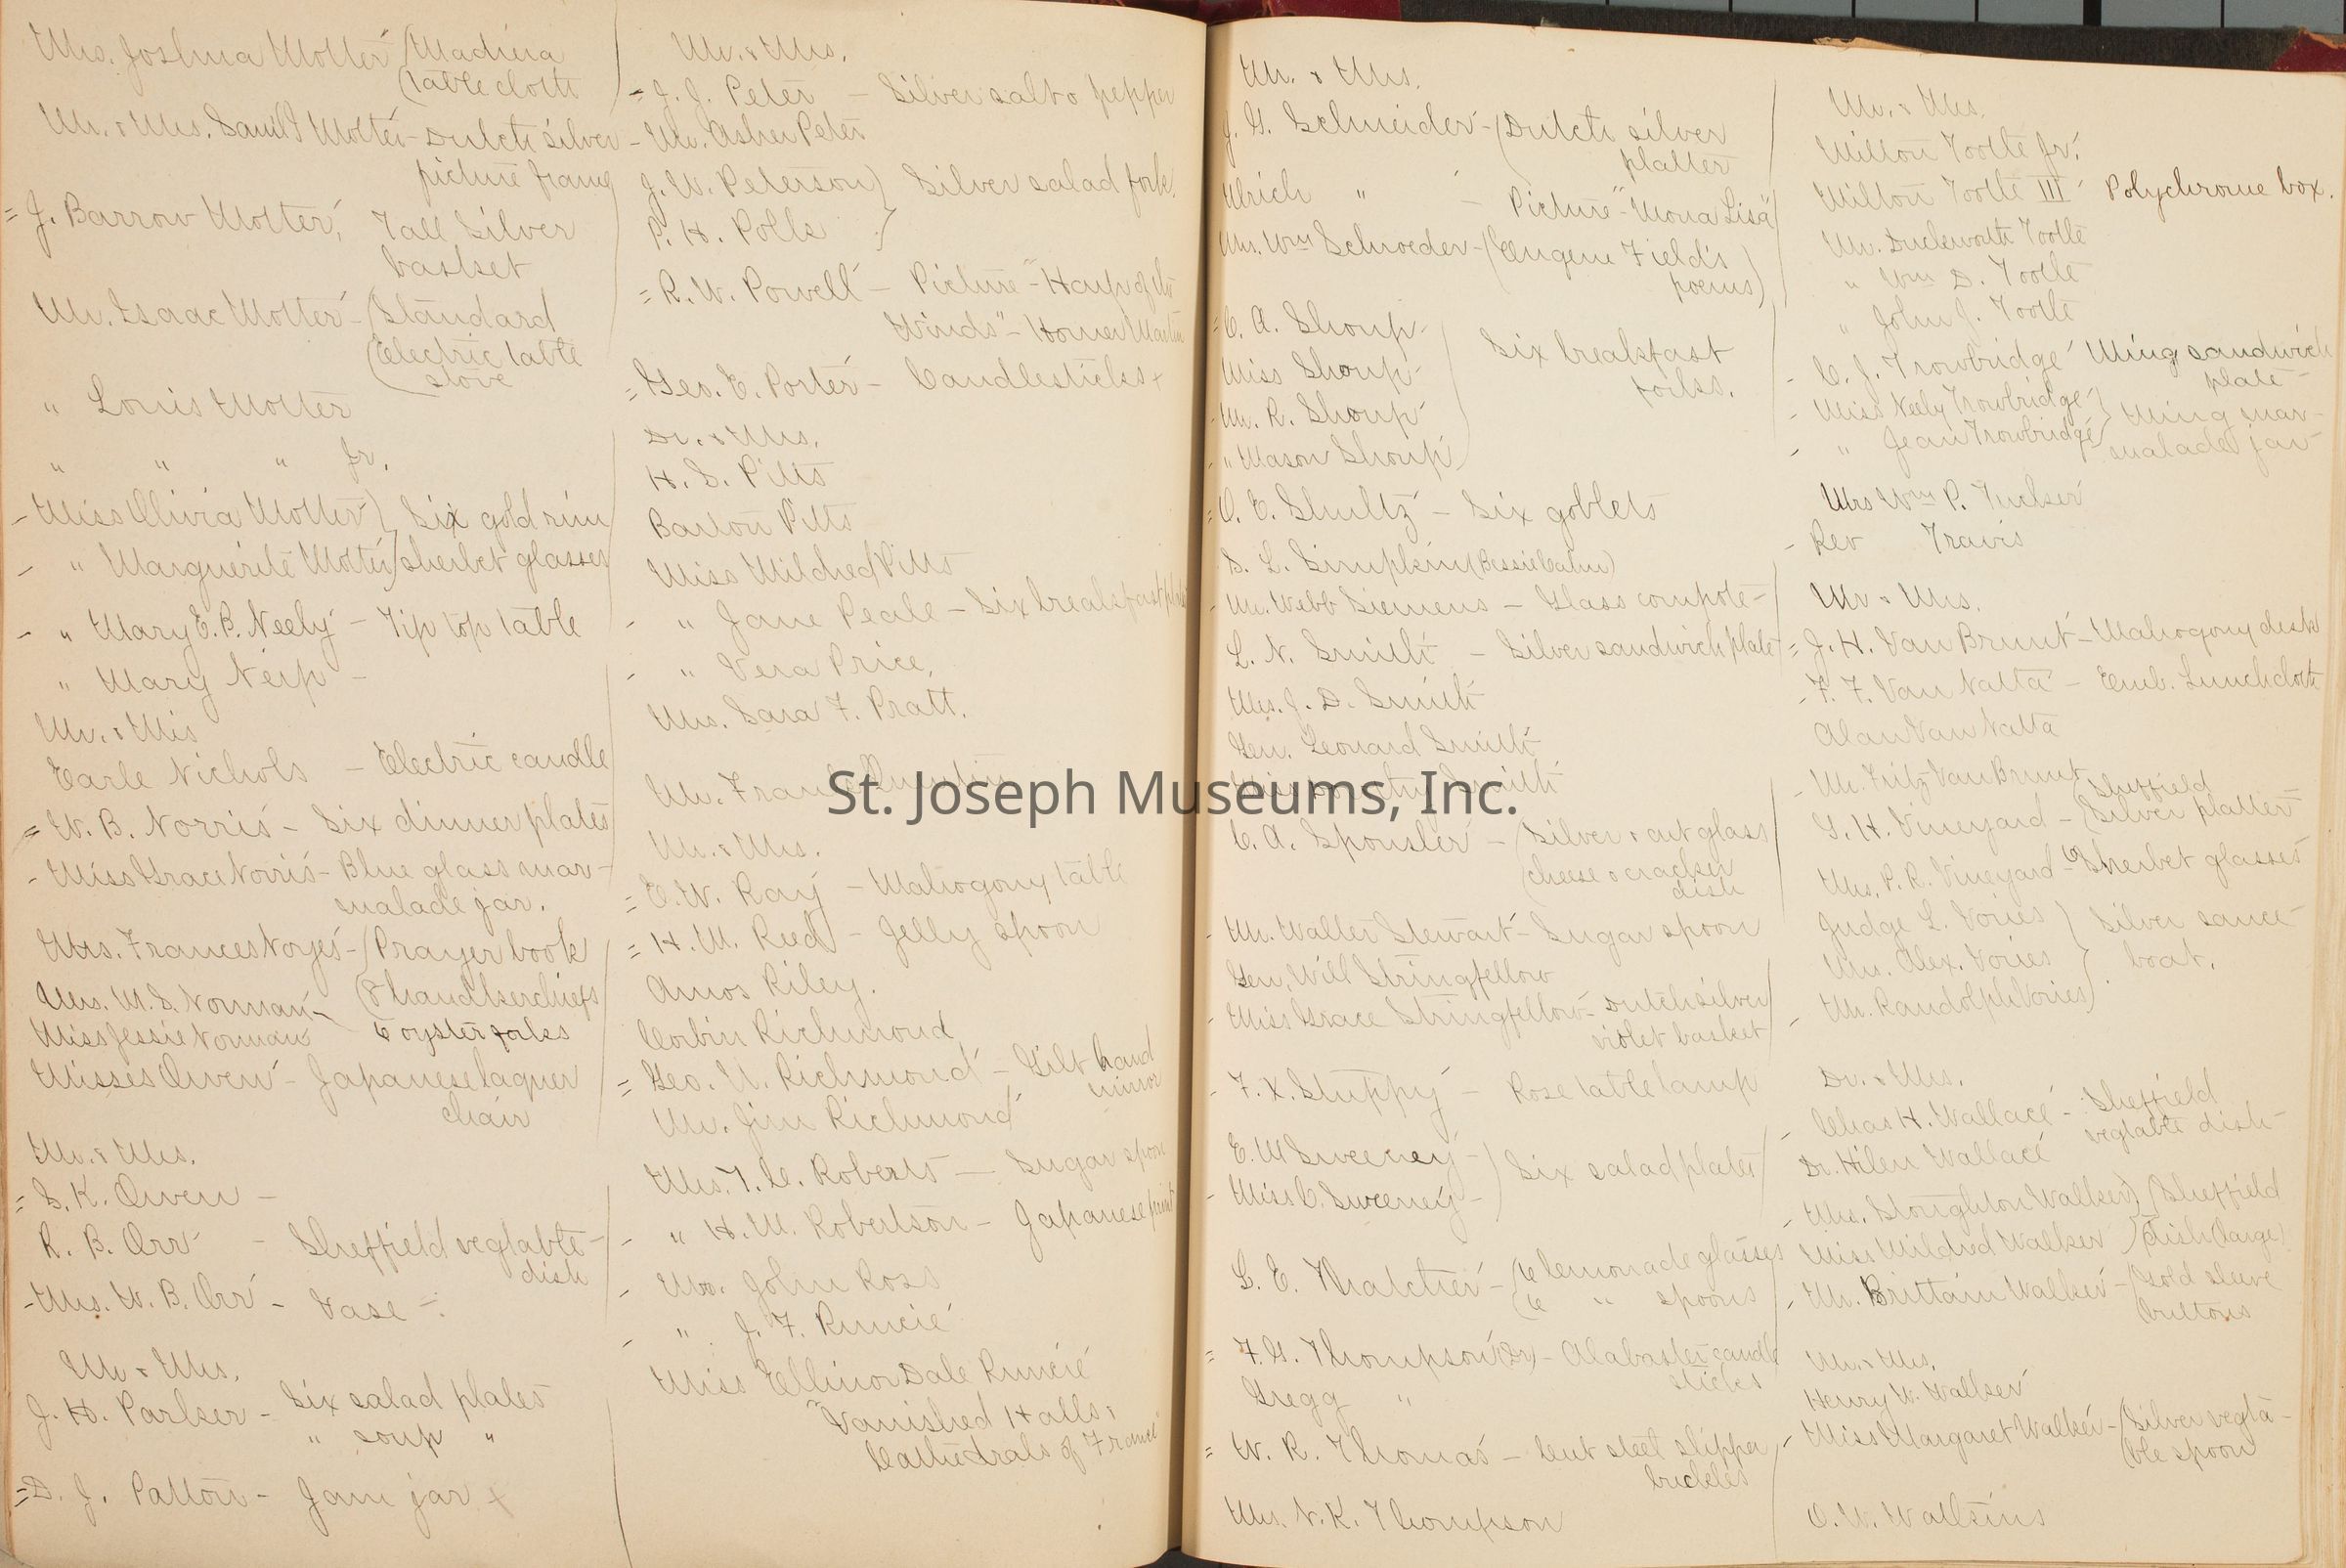 Mrs. Joshua Motter (Madiera
(table cloth
Mr. & Mrs. Sam'l Motter - Dutch silver
picture frame
= J. Barrow Motter, Tall Silver
basket
Mr. Isaac Motter - (Standard
(Electric table
stove
" Louis Motter
" " " Jr.
- Miss Olivia Motter) Six gold rim
- " Marguerite Motter) sherbet glasses
- " Mary E. P. Neely - Tip top table
" Mary Neip -
Mr. & Mrs
Earle Nichols - Electric candle
= W. B. Norris - Six dinner plates
- Miss Grace Norris - Blue glass mar-
malade jar.
Mrs. Frances Noyes - (Prayer book
(& handkerchiefs
Mrs. M. S. Norman -
Miss Jessie Norman 6 oyster forks
Misses Owen - Japanese laquer
chair
Mr. & Mrs.
= S. K. Owen -
R. B. Orr - Sheffield vegtable -
dish
- Mrs. W. B. Orr - Vase -
Mr & Mrs.
J. H. Parker - Six salad plates
" soup "
= D. J. Patton - Jam jar x
Mr. & Mrs.
= J. J. Peter - Silver salt & pepper
- Mr. Asher Peter
J. W. Peterson) Silver salad fork.
P. H. Polls )
= R. W. Powell - Picture - "Harp of the
Winds" - Homer Martin
= Geo. E. Porter - Candlesticks x
Dr. & Mrs.
H. S. Pitts
Barton Pitts
Miss Mildred Pitts
- " Jane Peale - Six breakfast plates
- " Vera Price.
Mrs. Sara F. Pratt.
Mr. Frank
Mr. & Mrs.
= E. W. Ray - Mahogony table
= H. M. Reed - Jelly spoon
Amos Riley.
Corbin Richmond
= Geo. N. Richmond - Gilt hand
mirror
Mr. Jim Richmond
Mrs. T. D. Roberts - Sugar spoon
- " H. M. Robertson - Japanese print
- Mr. John Ross
- " J. F. Runcie
Miss Ellinor Dale Runcie
"Vanished Halls &
Cathedrals of France"
Mr. & Mrs.
J. G. Schneider - (Dutch silver
platter
Ulrich " - Picture - "Mona Lisa"
Mrs. Wm Schroeder - (Eugene Field's
poems)
= C. A. Shoup -
Miss Shoup - Six breakfast
forks.
- Mr. R. Shoup
- " Mason Shoup
= O. E. Shultz - Six goblets
S. L. Simpkin (Bessie Calm)
- Mr. Webb Siemens - Glass compote -
L. N. Smith - Silver sandwich plate
Mrs. J. D. Smith
Gen. Leonard Smith
Miss Dorothy Smith
St. Joseph Museums, Inc.
C. A. Sponsler - (Silver & cut glass
(cheese & cracker
dish
- Mr. Walter Stewart - Sugar spoon
Gen. Will Stringfellow
- Miss Grace Stringfellow - Dutch silver
violet basket
- F. X. Stuppy - Rose table lamp
E. M Sweeney -) Six salad plates
- Miss C. Sweeney -
G. E. Thatcher - (6 lemonade glasses
(6 " spoons
= F. G. Thompson (Dr) - Alabaster candle
sticks
Gregg "
= W. R. Thomas - Cut steel slipper
buckles
Mrs. N. K. Thompson
Mr. & Mrs.
Milton Tootle Jr.
Milton Tootle III Polychrome box.
Mr. Duckworth Tootle
" Wm D. Tootle
" John J. Tootle
- C. J. Trowbridge Ming sandwich
plate -
- Miss Neely Trowbridge) Ming mar-
- " Jean Trowbridge) malade jar
Mrs Wm P. Tucker
- Rev Travis
Mr & Mrs.
= J. H. Van Brunt - Mahogony desk
- F. F. Van Natta - Emb. Lunch cloth
Alan Van Natta
- Mr. Fritz Van Brunt
G. H. Vineyard - (Sheffield
Silver platter
Mrs. P. R. Vineyard - 6 Sherbet glasses
Judge L. Vories ) Silver sauce
Mr. Alex. Vories ) boat.
- Mr. Randolph Vories)
Dr. & Mrs.
- Chas H. Wallace - Sheffield
vegtable dish -
Dr. Hilen Wallace
- Mrs. Stoughton Walker) (Sheffield
Miss Mildred Walker ) dish (large)
- Mr. Brittain Walker - (Gold sleeve
(buttons
Mr. & Mrs.
Henry W. Walker
- Miss Margaret Walker - (Silver vegta-
(ble spoon
O. W. Watkins